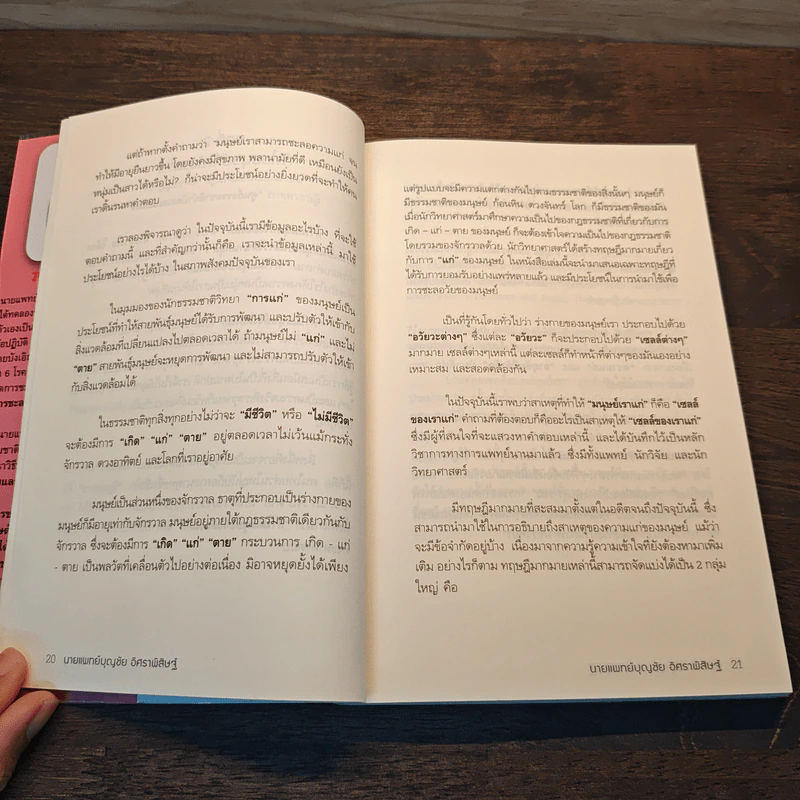 แต่ถ้าหากตั้งคำถามว่า "มนุษย์เราสามารถชะลอความแก่
ทำให้มีอายุยืนยาวขึ้น โดยยังคงมีสุขภาพ พลานามัยที่ดี เหมือนยังเป็น
หนุ่มเป็นสาวได้หรือไม่? ก็น่าจะมีประโยชน์อย่างยิ่งยวดที่จะทำให้คน
เราดิ้นรนหาคำตอบ
เราลองพิจารณาดูว่า ในปัจจุบันนี้เรามีข้อมูลอะไรบ้าง ที่จะใช้
ตอบคำถามนี้ และที่สำคัญกว่านั้นก็คือ เราจะนำข้อมูลเหล่านี้ มาใช้
ประโยชน์อย่างไรได้บ้าง ในสภาพสังคมปัจจุบันของเรา
ในมุมมองของนักธรรมชาติวิทยา "การแก่" ของมนุษย์เป็น
ประโยชน์ที่ทำให้สายพันธุ์มนุษย์ได้รับการพัฒนา และปรับตัวให้เข้ากับ
สิ่งแวดล้อมที่เปลี่ยนแปลงไปตลอดเวลาได้ ถ้ามนุษย์ไม่ "แก่" และไม่
"ตาย" สายพันธุ์มนุษย์จะหยุดการพัฒนา และไม่สามารถปรับตัวให้เข้า
กับสิ่งแวดล้อมได้
ในธรรมชาติทุกสิ่งทุกอย่างไม่ว่าจะ "มีชีวิต" หรือ "ไม่มีชีวิต"
จะต้องมีการ "เกิด" "แก่" "ตาย" อยู่ตลอดเวลาไม่เว้นแม้กระทั่ง
จักรวาล ดวงอาทิตย์ และโลกที่เราอยู่อาศัย
มนุษย์เป็นส่วนหนึ่งของจักรวาล ธาตุที่ประกอบเป็นร่างกายของ
มนุษย์ก็มีอายุเท่ากับจักรวาล มนุษย์อยู่ภายใต้กฎธรรมชาติเดียวกันกับ
จักรวาล ซึ่งจะต้องมีการ "เกิด" "แก่" "ตาย" กระบวนการ เกิด - แก่
- ตาย เป็นพลวัตที่เคลื่อนตัวไปอย่างต่อเนื่อง มิอาจหยุดยั้งได้เพียง
20 นายแพทย์บุญชัย อิศราพิสิษฐ์
แต่รูปแบบจะมีความแตกต่างกันไปตามธรรมชาติของสิ่งนั้นๆ มนุษย์ก็
มีธรรมชาติของมนุษย์ ก้อนหิน ดวงจันทร์ โลก ก็มีธรรมชาติของมัน
เมื่อนักวิทยาศาสตร์มาศึกษาความเป็นไปของกฎธรรมชาติที่เกี่ยวกับการ
เกิด - แก่ - ตาย ของมนุษย์ ก็จะต้องเข้าใจความเป็นไปของกฎธรรมชาติ
โดยรวมของจักรวาลด้วย นักวิทยาศาสตร์ได้สร้างทฤษฎีมากมายเกี่ยว
กับการ "แก่" ของมนุษย์ ในหนังสือเล่มนี้จะนำมาเสนอเฉพาะทฤษฎีที่
ได้รับการยอมรับอย่างแพร่หลายแล้ว และมีประโยชน์ในการนำมาใช้เพื่อ
การชะลอวัยของมนุษย์
เป็นที่รู้กันโดยทั่วไปว่า ร่างกายของมนุษย์เรา ประกอบไปด้วย
"อวัยวะต่างๆ" ซึ่งแต่ละ "อวัยวะ" ก็จะประกอบไปด้วย "เซลล์ต่างๆ"
มากมาย เซลล์ต่างๆเหล่านี้ แต่ละเซลล์ก็ทำหน้าที่ต่างๆของมันเองอย่าง
เหมาะสม และสอดคล้องกัน
ในปัจจุบันนี้เราพบว่าสาเหตุที่ทำให้ "มนุษย์เราแก่" ก็คือ "เซลล์
ของเราแก่" คำถามที่ต้องตอบก็คืออะไรเป็นสาเหตุให้ "เซลล์ของเราแก่"
ซึ่งมีผู้ที่สนใจที่จะแสวงหาคำตอบเหล่านี้ และได้บันทึกไว้เป็นหลัก
วิชาการทางการแพทย์นานมาแล้ว ซึ่งมีทั้งแพทย์ นักวิจัย และนัก
วิทยาศาสตร์
มีทฤษฎีมากมายที่สะสมมาตั้งแต่ในอดีตจนถึงปัจจุบันนี้ ซึ่ง
สามารถนำมาใช้ในการอธิบายถึงสาเหตุของความแก่ของมนุษย์ แม้ว่า
จะมีข้อจำกัดอยู่บ้าง เนื่องมาจากความรู้ความเข้าใจที่ยังต้องหามาเพิ่ม
เติม อย่างไรก็ตาม ทฤษฎีมากมายเหล่านี้สามารถจัดแบ่งได้เป็น 2 กลุ่ม
ใหญ่ คือ
นายแพทย์บุญชัย อิศราพิสิษฐ์ 21